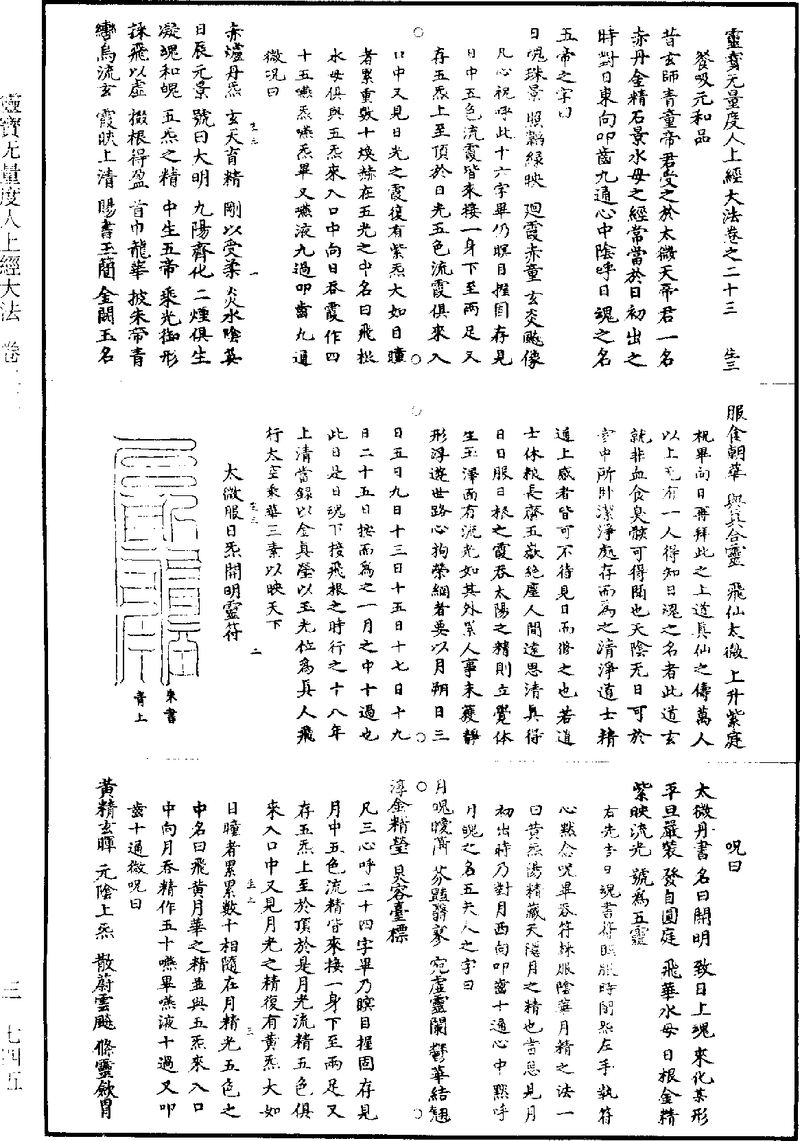 靈寶无量度人上經大法卷之二十三 生三
餐吸元和品
昔玄師青童帝君受之於太微天帝君一名
赤丹金精石景水母之經常當於日初出之
時對日東向叩齒九通心中陰呼日魂之名
五帝之字曰
日魂珠景 照韜綠映 廻霞赤童 玄炎飈像
凡心祝呼此十六字畢仍瞑目握固存見
日中五色流霞皆來接一身下至兩足又
存五炁上至頂於日光五色流霞俱來入
口中又見日光之霞復有紫炁大如日瞳
者累重數十煥赫在五光之中名曰飛根
水母俱與五炁來入口中向日吞霞作四
十五嚥炁嚥炁畢又嚥液九過叩齒九通
微祝曰
赤爐丹炁 玄天育精 剛以受柔 炎水陰英
日辰元景 號曰大明 九陽齊化 二煙俱生
凝魂和魄 五炁之精 中生五帝 乘光御形
採飛以虛 掇根得盈 首巾龍華 披朱帶青
轡烏流玄 霞映上清 賜書玉簡 金閣玉名
服食朝華 與真合靈 飛仙太微 上升紫庭
祝畢向日再拜此之上道真仙之儔萬人
以上先有一人得知日魂之名者此道玄
就非血食臭骸可得聞也天陰无日可於
室中所卧潔淨處存而為之清淨道士精
通上感者皆可不待見日而修之也若道
士休粮長齋五嶽絕塵人間遠思清真得
日日服日根之霞吞太陽之精則立覺體
生玉澤面有流光如其外累人事未獲靜
形浮遊世路心拘榮網者要以月朔日三
日五日九日十三日十五日十七日十九
日二十五日按而為之一月之中十過也
此日是日魂下接飛根之時行之十八年
上清當錄以金真瑩以玉光位為真人飛
行太空乘華三素以映天下
太微服日炁開明靈符
朱書
青上
呪曰
太微丹書 名曰開明 致日上魂 來化某形
平旦嚴裝 發自圓庭 飛華水母 日根金精
紫映流光 號為五靈
右先書日魂書符照服時閉炁左手執符
心默念呪畢吞符採服陰華月精之法一
曰黃炁陽精藏天隱月之精也當思見月
初出時乃對月西向叩齒十通心中默呼
月魄之名五夫人之字曰
月魄曖蕭 芬豔翳寥 宛虛靈蘭 鬱華結翹
淳金精瑩 炅容臺標
凡三心呼二十四字畢乃瞑目握固存見
月中五色流精皆來接一身下至兩足又
存五炁上至於頂於是月光流精五色俱
來入口中又見月光之精復有黃炁大如
目瞳者累累數十相隨在月精光五色之
中名曰飛黃月華之精並與五炁來入口
中向月吞精作五十嚥畢嚥液十過又叩
齒十通微呪曰
黃精玄暉 元陰上炁 散蔚雲飈 條靈斂胃
靈寶无量度人上經大法 卷
三 七四五